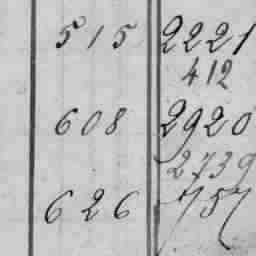 515 2221
412
608 2920
2739
626 757